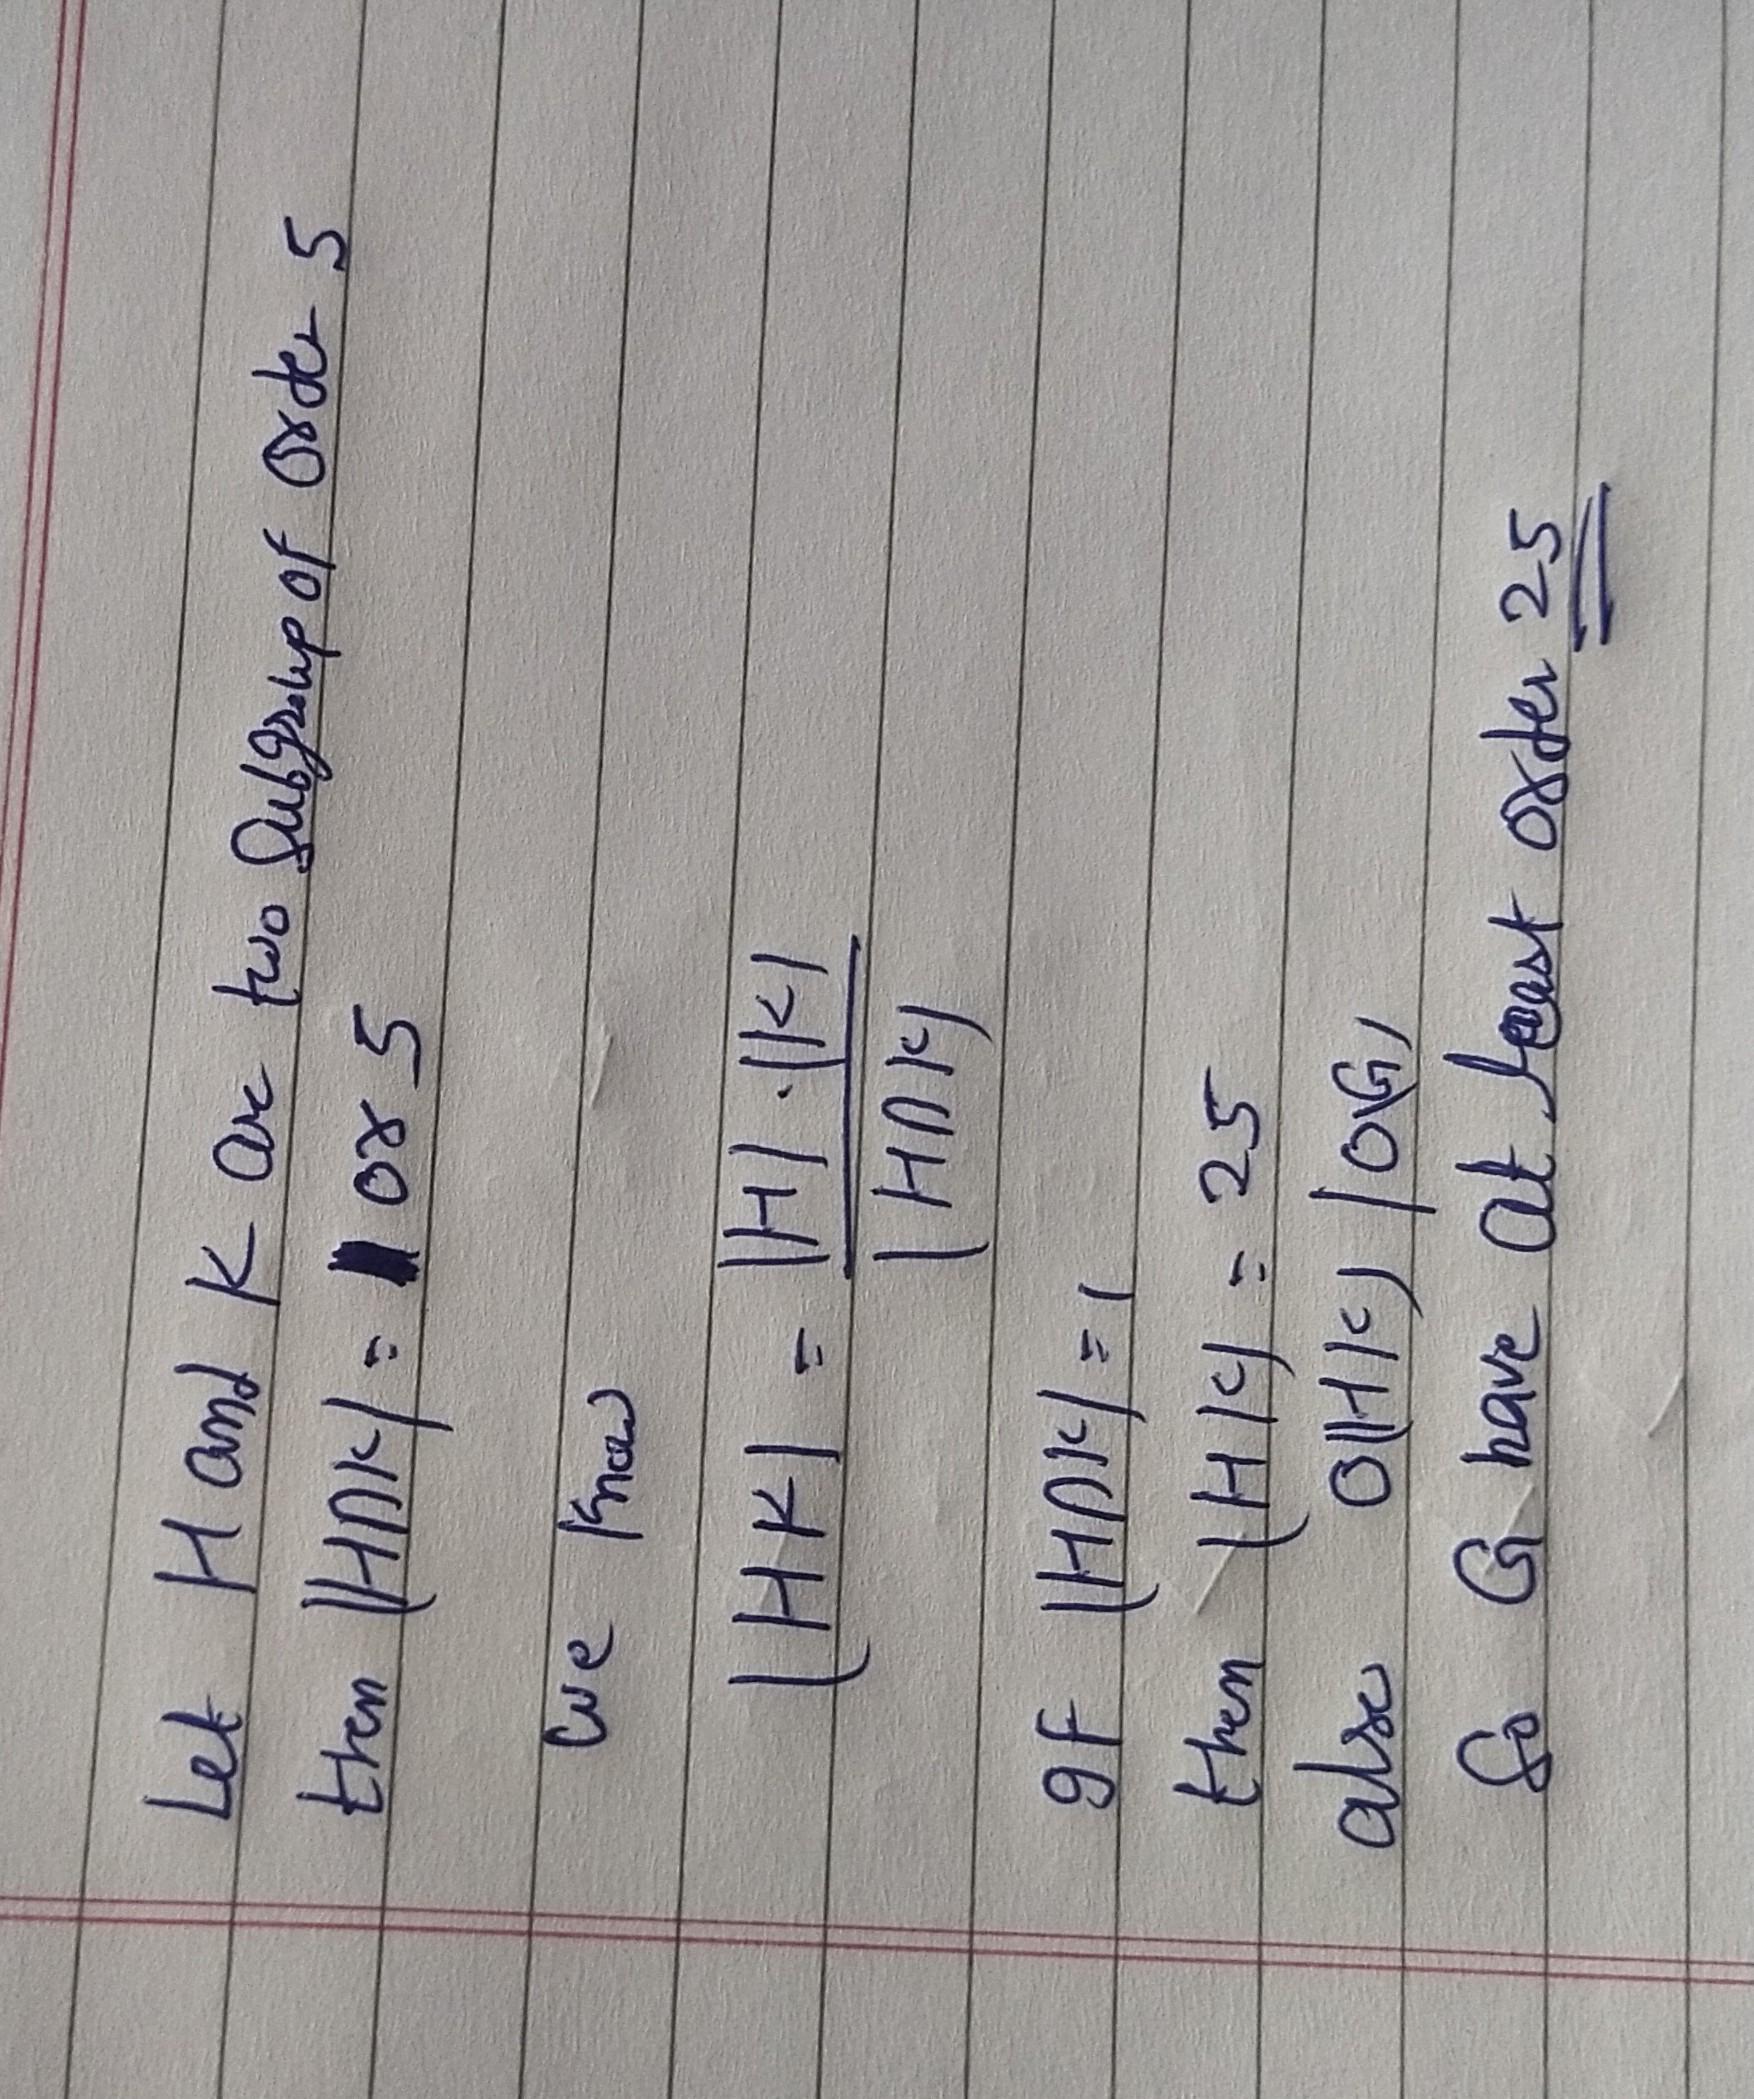 Let H and K are two Subgroup of order 5
then |H∩K| = 1 or 5
we know
|HK| = |H|.|K|
|H∩K|
If |H∩K| = 1
then |HK| = 25
also O(HK) / O(G)
So G have at least order 25